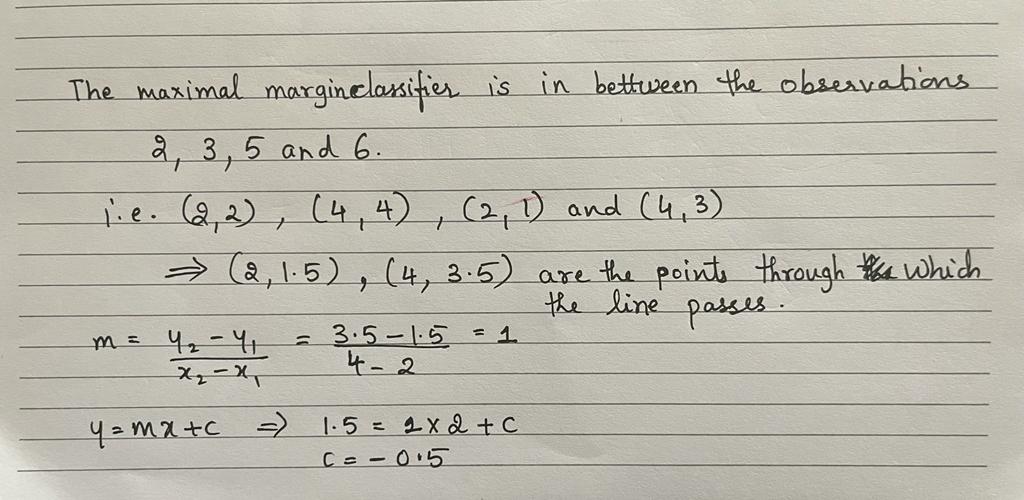 The maximal marginclassifier is in bettween the observations
2, 3, 5 and 6.
i.e. (2,2), (4,4), (2,1) and (4,3)
⇒ (2,1.5), (4, 3.5) are the points through which
the line passes.
m = y₂ - y₁ / x₂ - x₁ = 3.5 - 1.5 / 4 - 2 = 1
y = mx + c ⇒ 1.5 = 1 x 2 + c
c = - 0.5